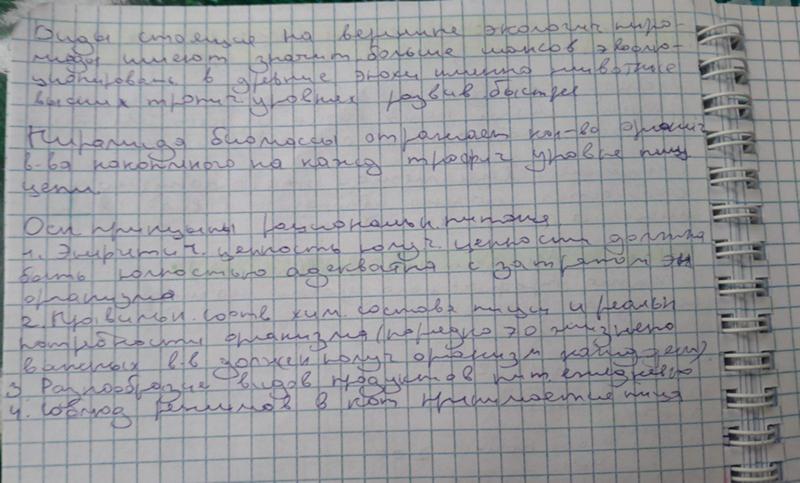 Виды стоящие на вершине экологич пира-
миды имеют значит больше шансов эволю-
ционировать в древние эпохи именно животные
высших трофич уровнях развив быстрее
Пирамида биомассы отражает кол-во органич
в-ва накопленного на кажд трофич уровне пищ
цепи.
Осн принципы рациональн. питания
1. Энергетич. ценность получ. ценности должна
быть полностью адекватна с затратом эн
организма
2. Правильн. соотв хим. состава пищи и реальн
потребности организма (порядка 70 жизнено
важных в-в должен получ организм кажд день)
3 Разнообразие видов продуктов пит. ежедневно
4. Соблюд режимов в кот принимается пища